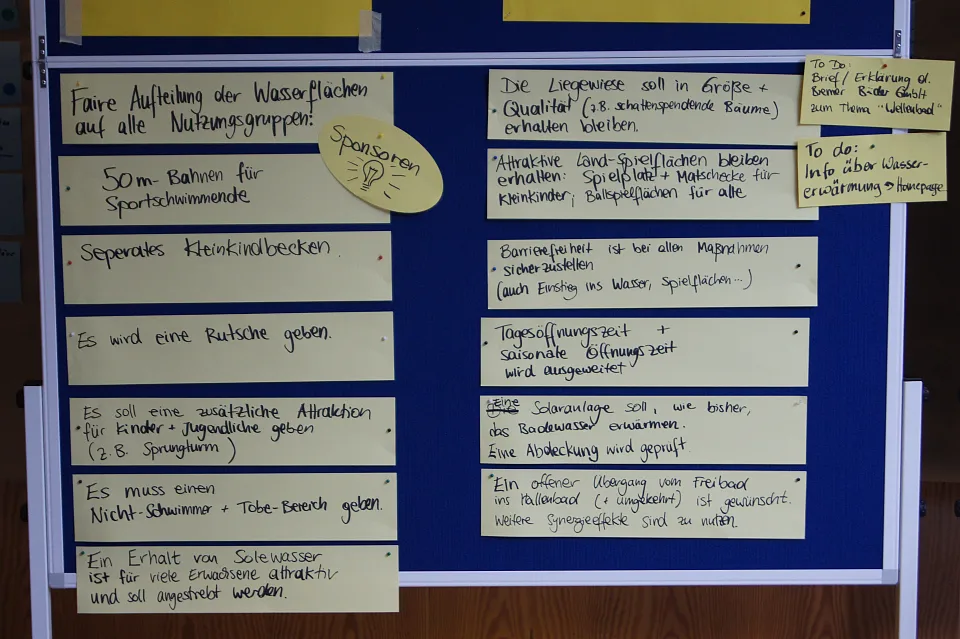 Faire Aufteilung der Wasserflächen
auf alle Nutzungsgruppen!
Sponsoren
50m-Bahnen für
Sportschwimmende
Seperates Kleinkindbecken.
Es wird eine Rutsche geben.
Es soll eine zusätzliche Attraktion
für Kinder + Jugendliche geben
(z.B. Sprungturm)
Es muss einen
Nicht-Schwimmer + Tobe-Bereich geben.
Ein Erhalt von Solewasser
ist für viele Erwachsene attraktiv
und soll angestrebt werden.
Die Liegewiese soll in Größe +
Qualität (z.B. schattenspendende Bäume)
erhalten bleiben.
Attraktive Land-Spielflächen bleiben
erhalten: Spielplatz + Matschecke für
Kleinkinder, Ballspielflächen für alle
Barrierefreiheit ist bei allen Maßnahmen
sicherzustellen
(auch Einstieg ins Wasser, Spielflächen...)
Tagesöffnungszeit +
saisonale Öffnungszeit
wird ausgeweitet
Eine Solaranlage soll, wie bisher,
das Badewasser erwärmen.
Eine Abdeckung wird geprüft.
Ein offener Übergang vom Freibad
ins Hallenbad (+ umgekehrt) ist gewünscht.
Weitere Synergieeffekte sind zu nutzen.
To Do:
Brief/Erklärung d.
Bremer Bäder GmbH
zum Thema "Wellenbad"
To do:
Info über Wasser-
erwärmung → Homepage